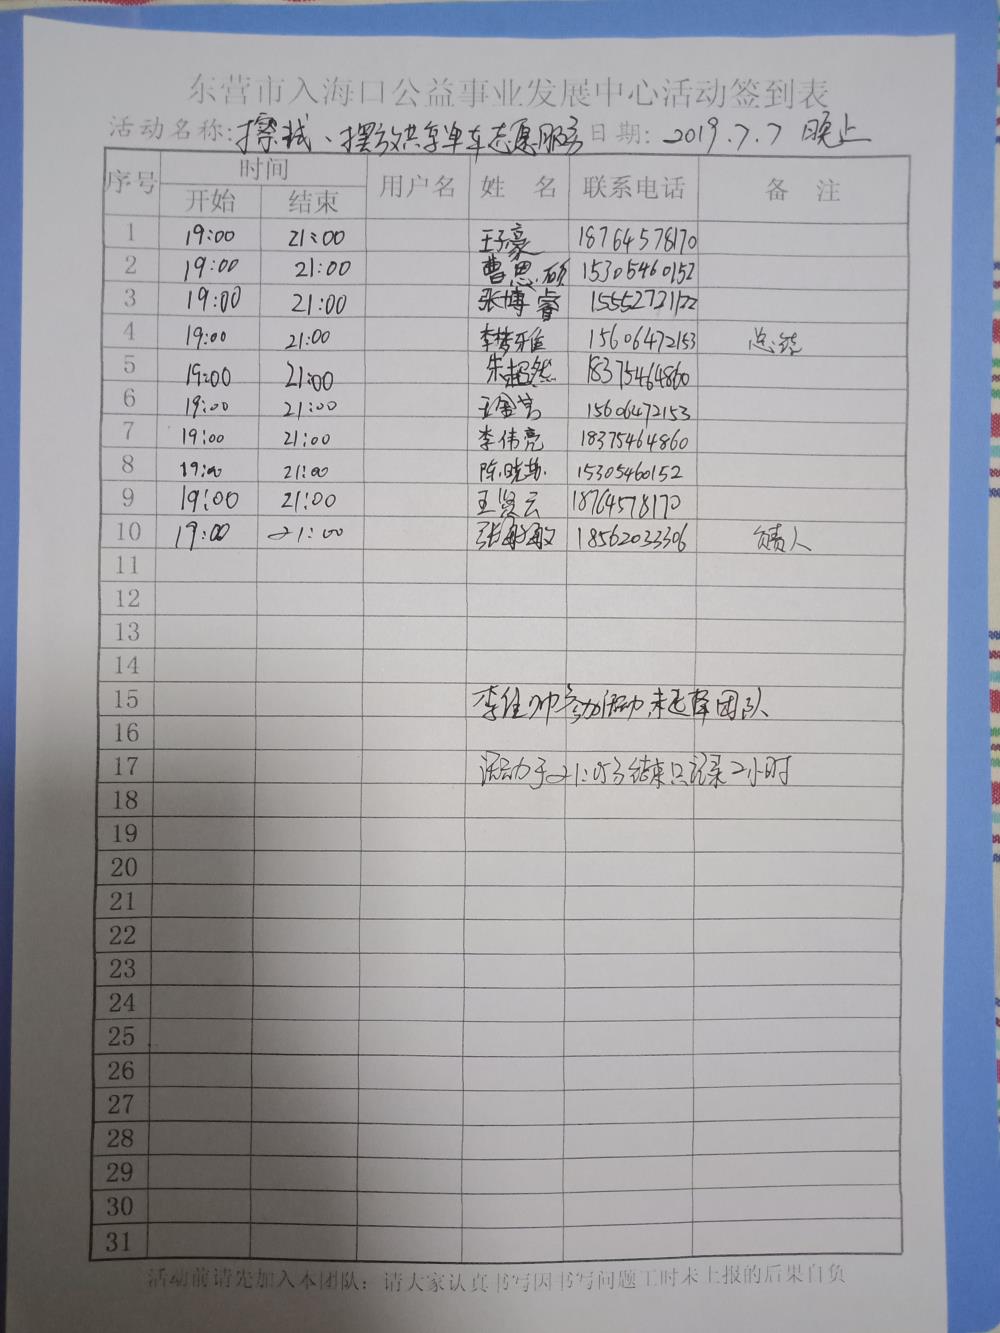 东营市入海口公益事业发展中心活动签到表
活动名称:擦拭、摆放共享单车志愿服务 日期: 2019.7.7 晚上
序号 时间 用户名 姓 名 联系电话 备 注
开始 结束
1 19:00 21:00 王子豪 18764578170
2 19:00 21:00 曹思硕 15305460152
3 19:00 21:00 张博睿 15552721122
4 19:00 21:00 李梦雅 15606472153
5 19:00 21:00 朱超然 18375464860
6 19:00 21:00 15606472153
7 19:00 21:00 李伟亮 18375464860
8 19:00 21:00 陈晓 15305460152
9 19:00 21:00 王贤云 18764578170
10 19:00 21:00 张敏敏 18562033306 负责人
11
12
13
14
15 李佳帅参加活动未选择团队
16
17 活动于21:05分结束只记录2小时
18
19
20
21
22
23
24
25
26
27
28
29
30
31
活动前请先加入本团队：请大家认真书写因书写问题工时未上报的后果自负